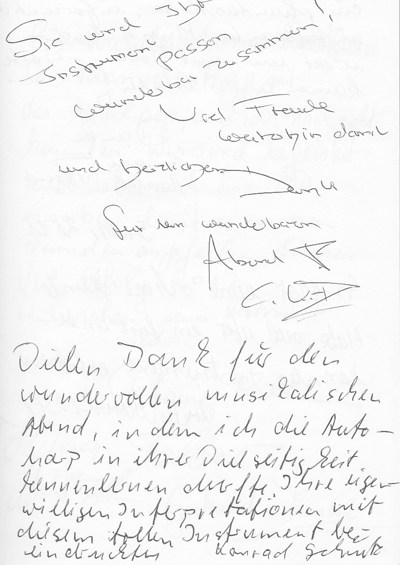 Sie und Ihr
Instrument passen
wunderbar zusammen!
Viel Freude
weiterhin damit
und herzlichen Dank
für den wunderbaren
Abend
Vielen Dank für den
wundervollen musikalischen
Abend, in dem ich die Auto-
harp in ihrer Vielseitigkeit
kennenlernen durfte. Ihre eigen
willigen Interpretationen mit
diesem tollen Instrument be-
eindruckten Konrad